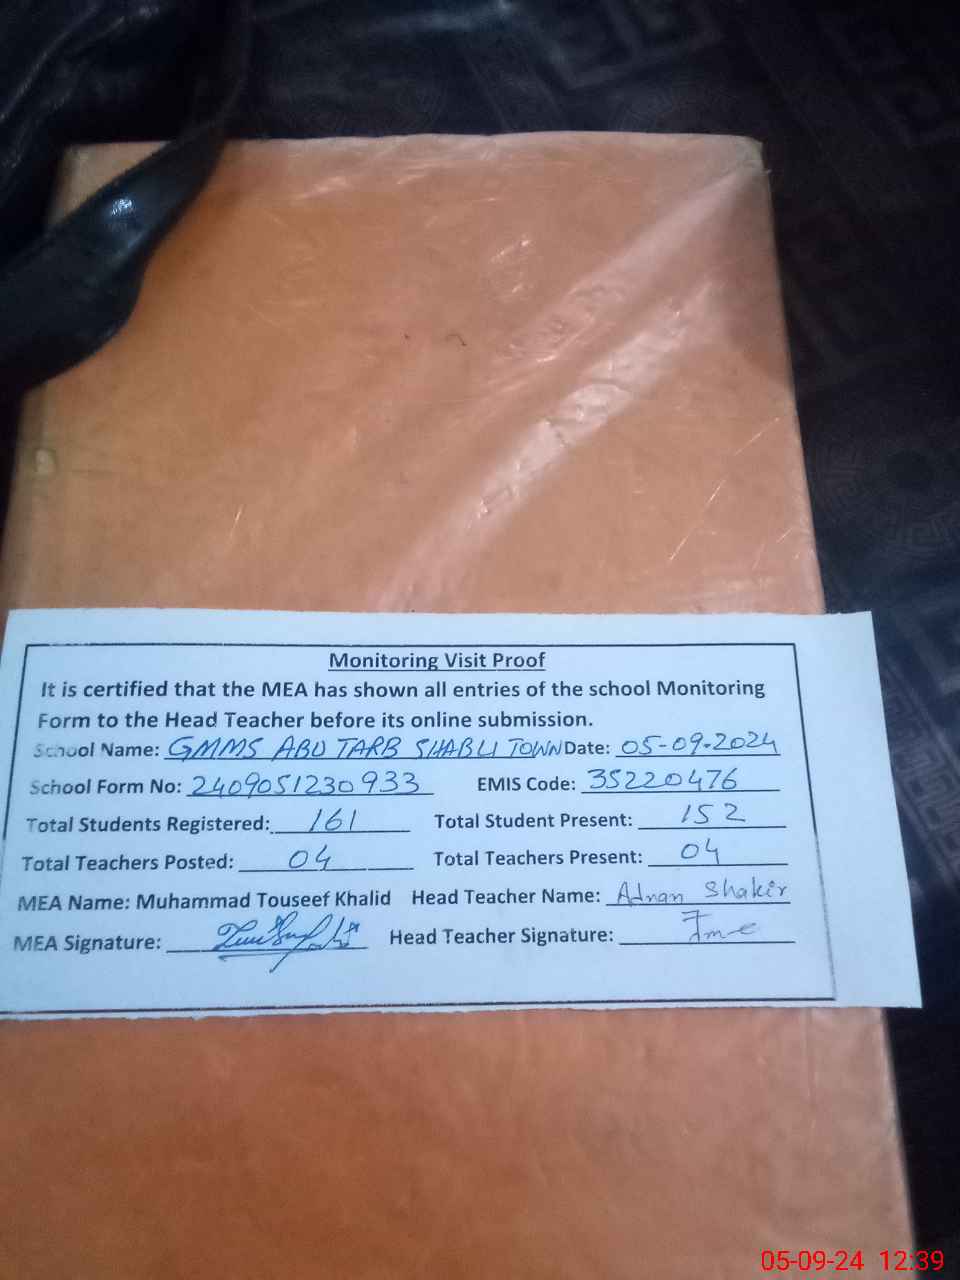 Monitoring Visit Proof
It is certified that the MEA has shown all entries of the school Monitoring
Form to the Head Teacher before its online submission.
School Name: GMMS ABU TARB SHABLI TOWN Date: 05-09-2024
School Form No: 2409051230933 EMIS Code: 35220476
Total Students Registered: 161 Total Student Present: 152
Total Teachers Posted: 04 Total Teachers Present: 04
MEA Name: Muhammad Touseef Khalid Head Teacher Name: Adnan Shakir
MEA Signature: Head Teacher Signature:
05-09-24 12:39